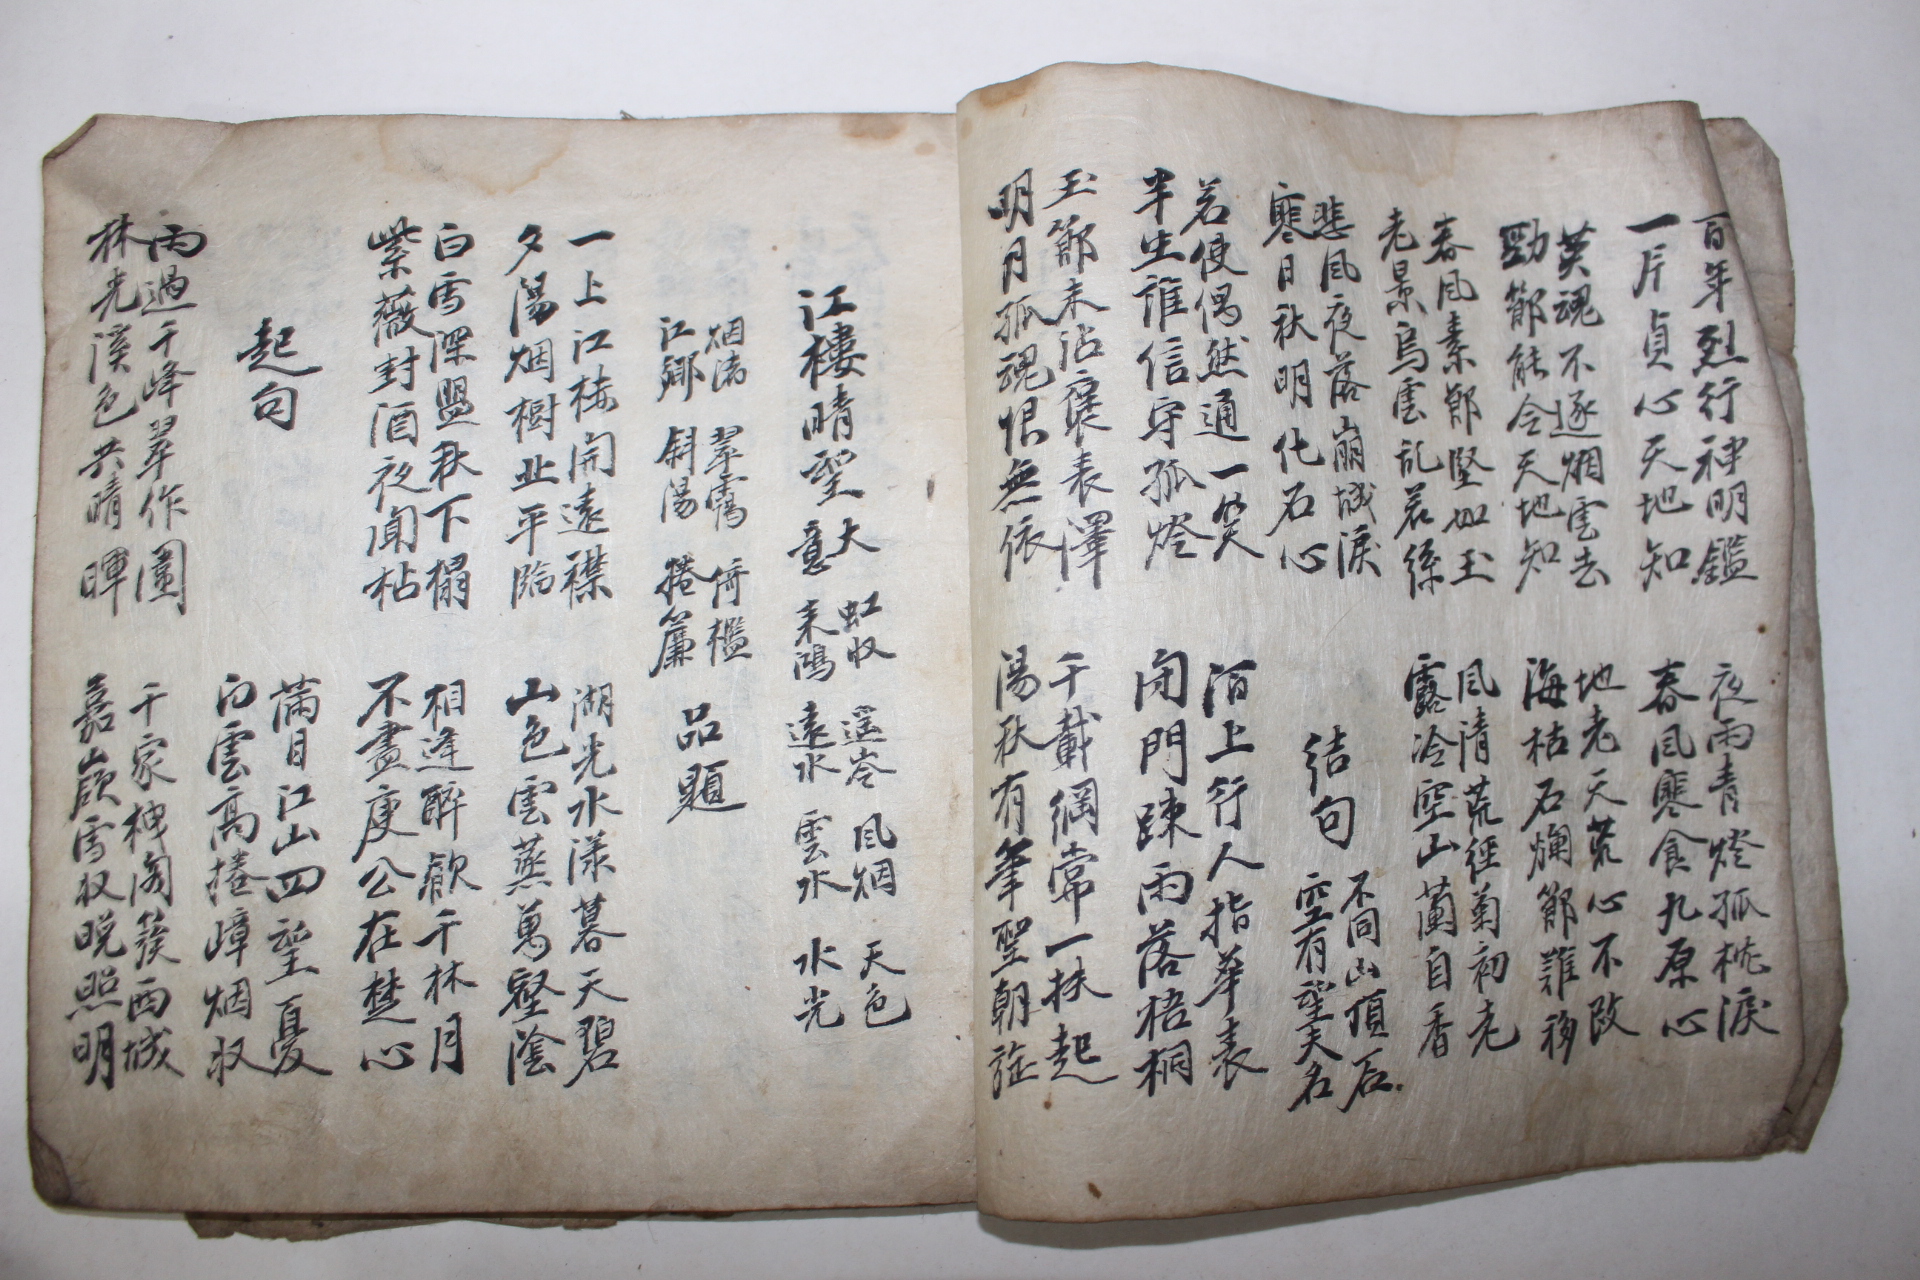 百年烈行神明鑑
一片貞心天地知
英魂不逐烟雲去
勁節能令天地知
春風素節堅如玉
老景烏雲乱若絲
悲風夜落崩城淚
寒日秋明化石心
若使偶然通一笑
半生誰信守孤燈
玉節未沾褒表澤
明月孤魂恨無依
夜雨青燈孤枕淚
春風寒食九原心
地老天荒心不改
海枯石爛節難移
風清荒徑菊初老
露冷空山蘭自香
結句
不同山頂石
空有望夫名
陌上行人指華表
閉門疎雨落梧桐
千載綱常一扶起
湯秋有筆聖朝旌
江樓晴望
大意
虹收
來鴻
遥岑
遠水
風烟
雲水
天色
水光
烟渚
江鄉
翠靄
斜陽
倚檻
捲簾
品題
一上江樓開遠襟
夕陽烟樹北平臨
白雪深盟秋下榻
紫薇封酒夜聞枯
湖光水漾暮天碧
山色雲蒸萬壑陰
相逢醉歓千林月
不盡庾公在楚心
起句
滿目江山四望憂
白雲高捲嶂烟收
雨過千峰翠作圍
林光溪色共晴暉
千家梅閣簇西城
嘉嶺雪收晚照明